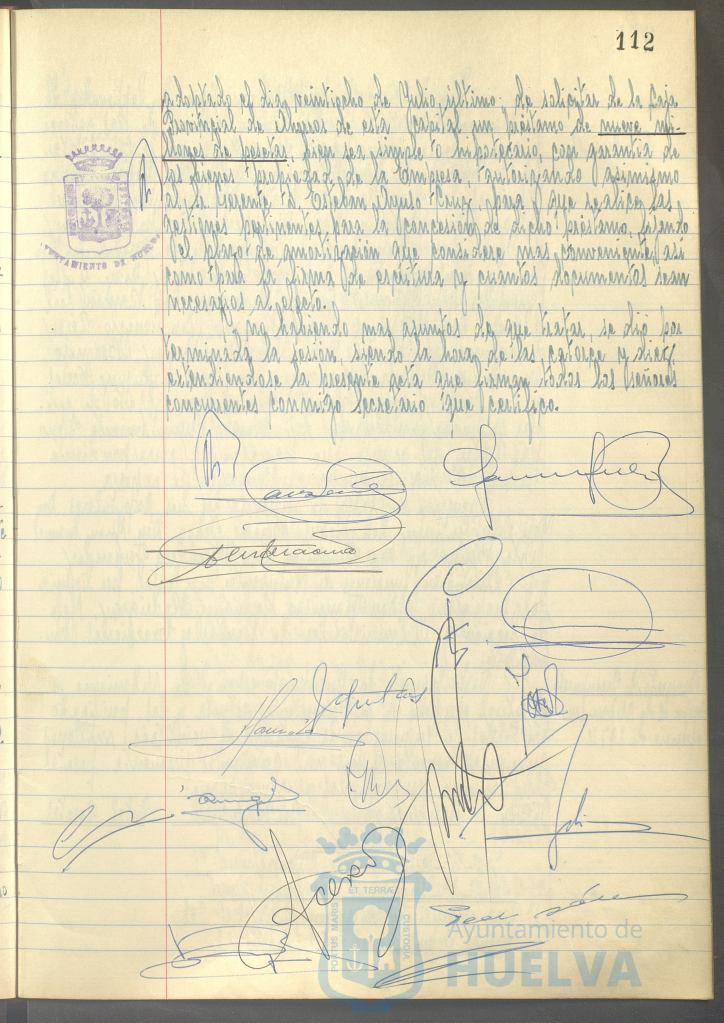 112
adoptado el dia veintiocho de Julio último, de solicitar de la Caja
Provincial de Ahorros de esta Capital un préstamo de nueve mi-
llones de pesetas, bien sea simple o hipotecario, con garantía de
los bienes propiedad de la Empresa, autorizando asimismo
al Gerente D. Esteban Cruz, para que realice las
gestiones pertinentes para la concesión de dicho préstamo, siendo
del plazo de amortización que considere mas conveniente, así
como para la firma de escritura y cuantos documentos sean
necesarios al efecto.
Y no habiendo mas asuntos de que tratar, se dió por
terminada la sesión, siendo la hora de las catorce y diez,
extendiendose la presente acta que firman todos los señores
concurrentes conmigo Secretario que certifico.
AYUNTAMIENTO DE HUELVA
PORTUS MARIS ET TERRÆ CUSTODIA
Ayuntamiento de
HUELVA